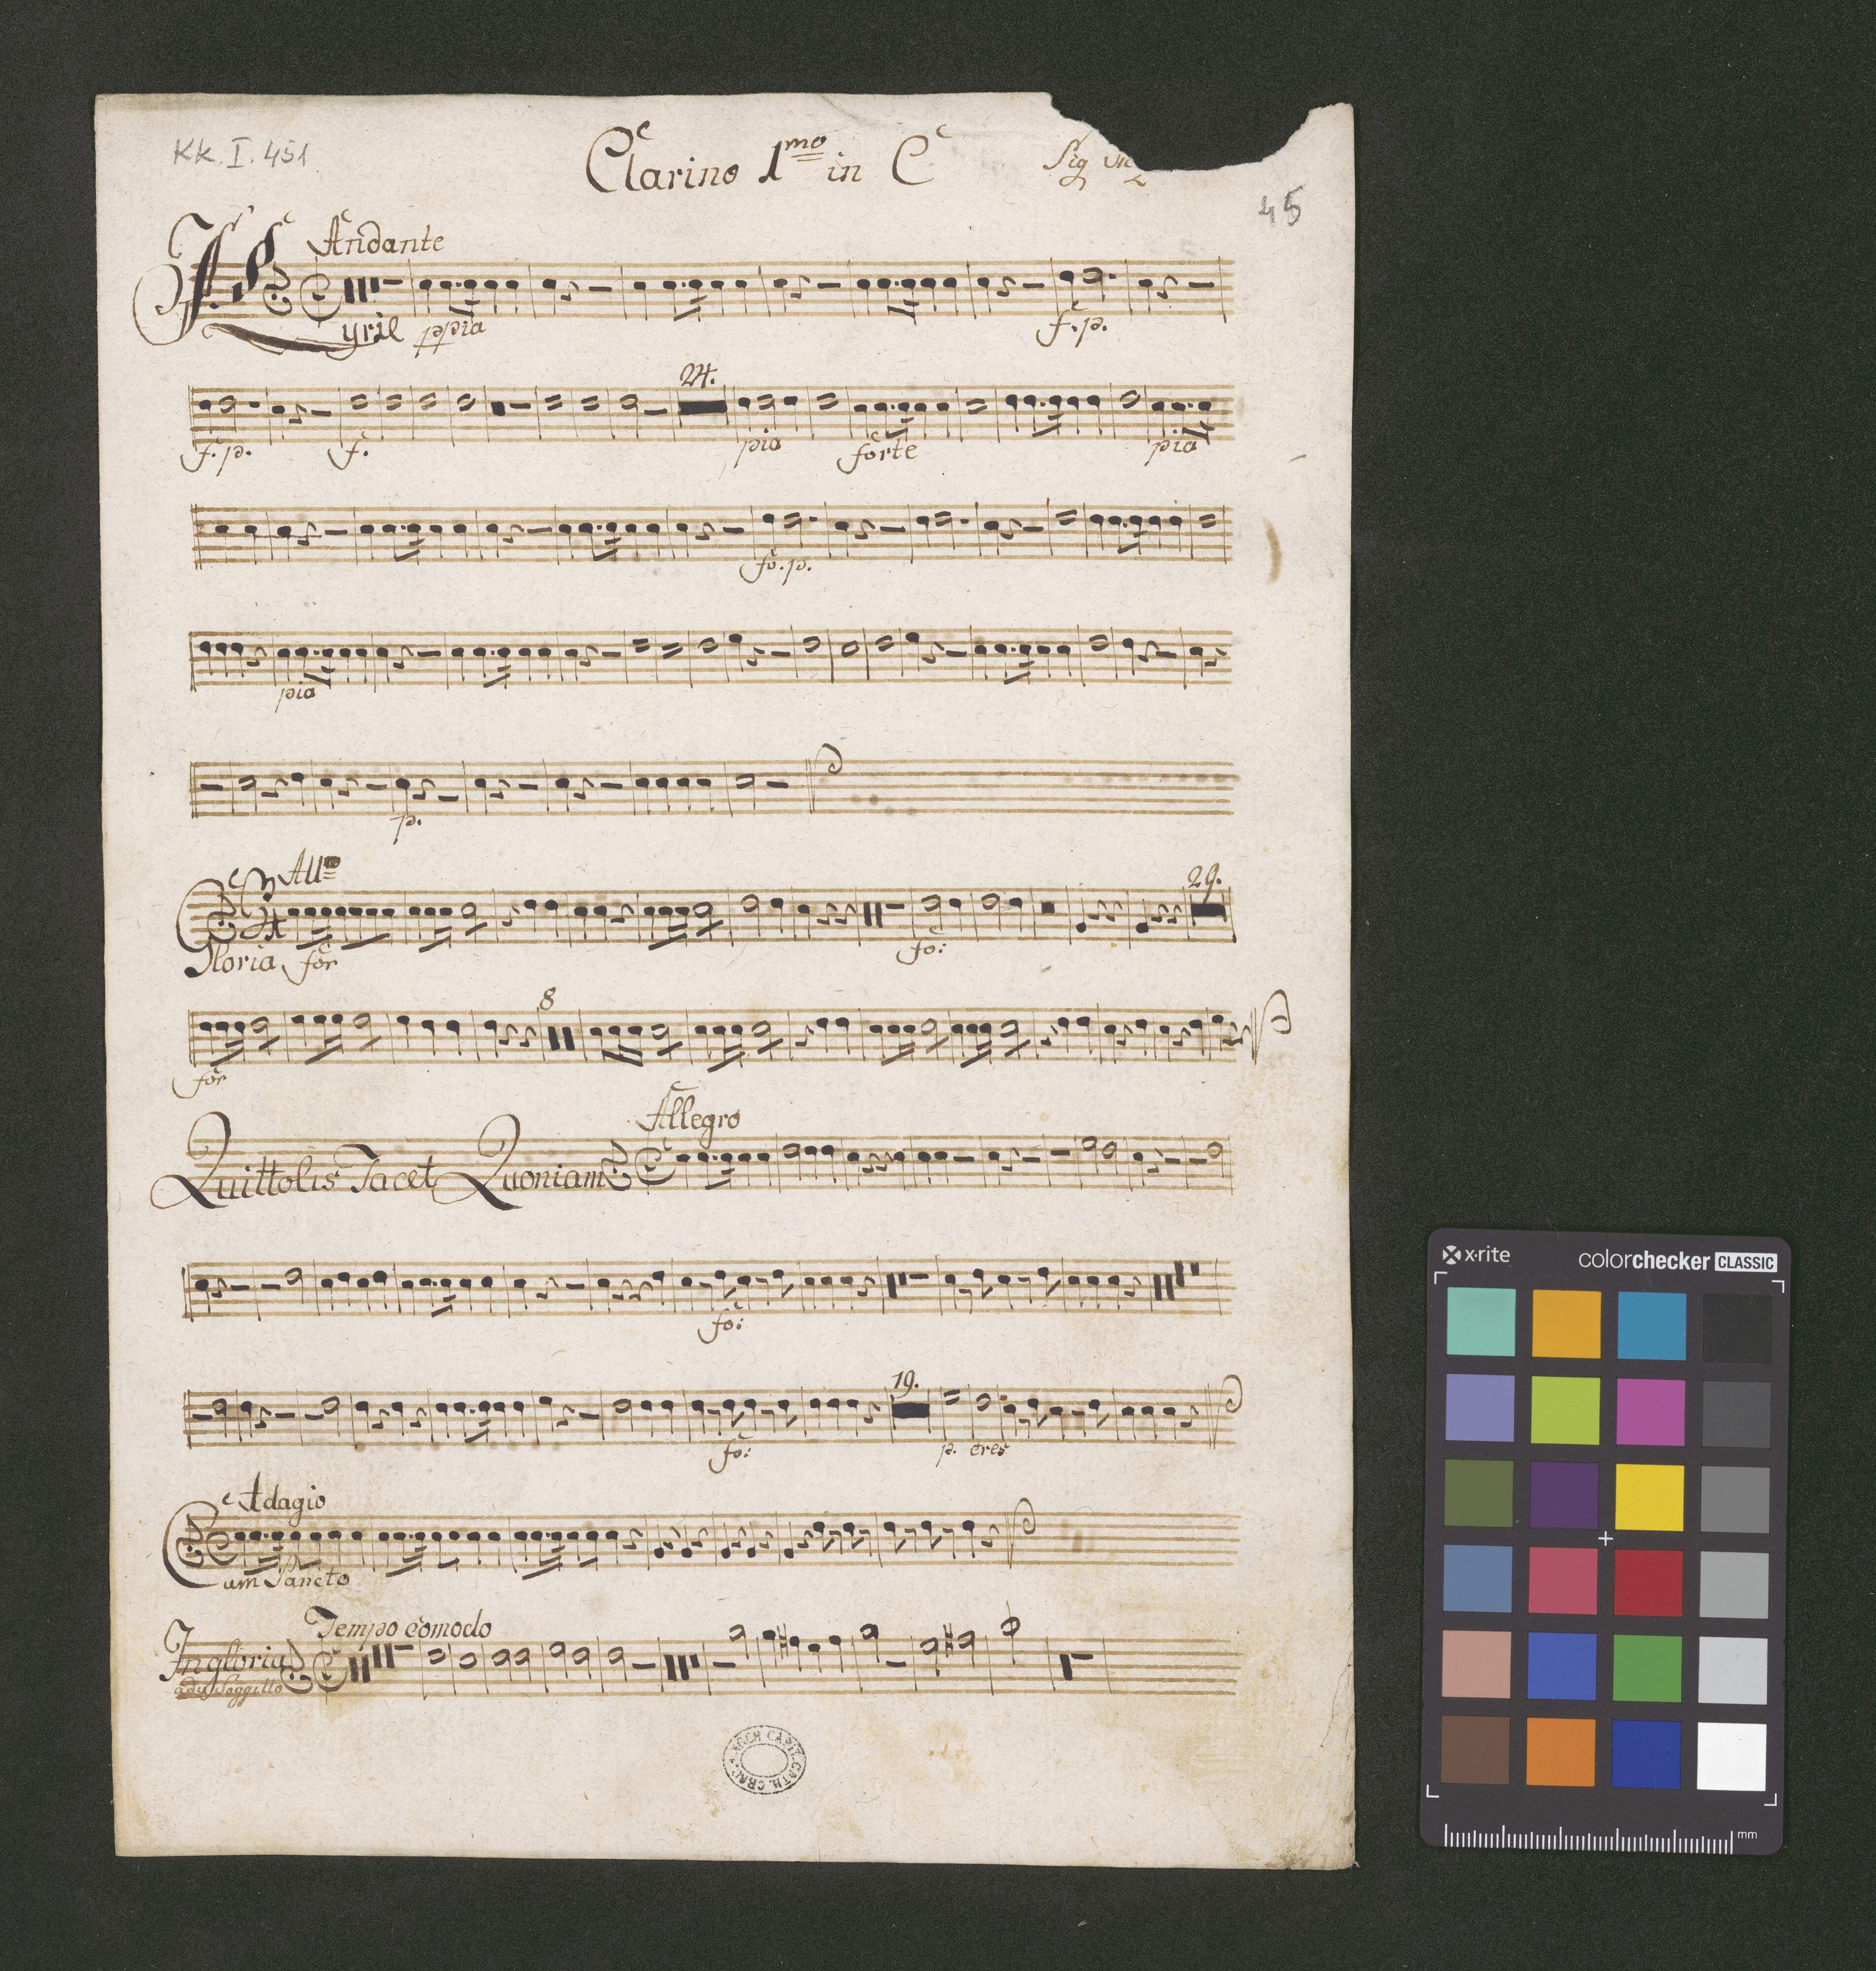 KK. I. 451
Clarino 1mo in C
Sig
45
Andante
Kyrie ppia f. p.
24.
f. p. f. pia forte pia
fo. p.
pia
p.
Allo
29.
Gloria for fo:
8
for
Allegro
Quittolis Tacet Quoniam
fo:
19.
fo: p. cres
Adagio
Cum Sancto
Tempo comodo
In gloria
ARCH. CAPIT. CATH. CRAC.
x·rite colorchecker CLASSIC
mm